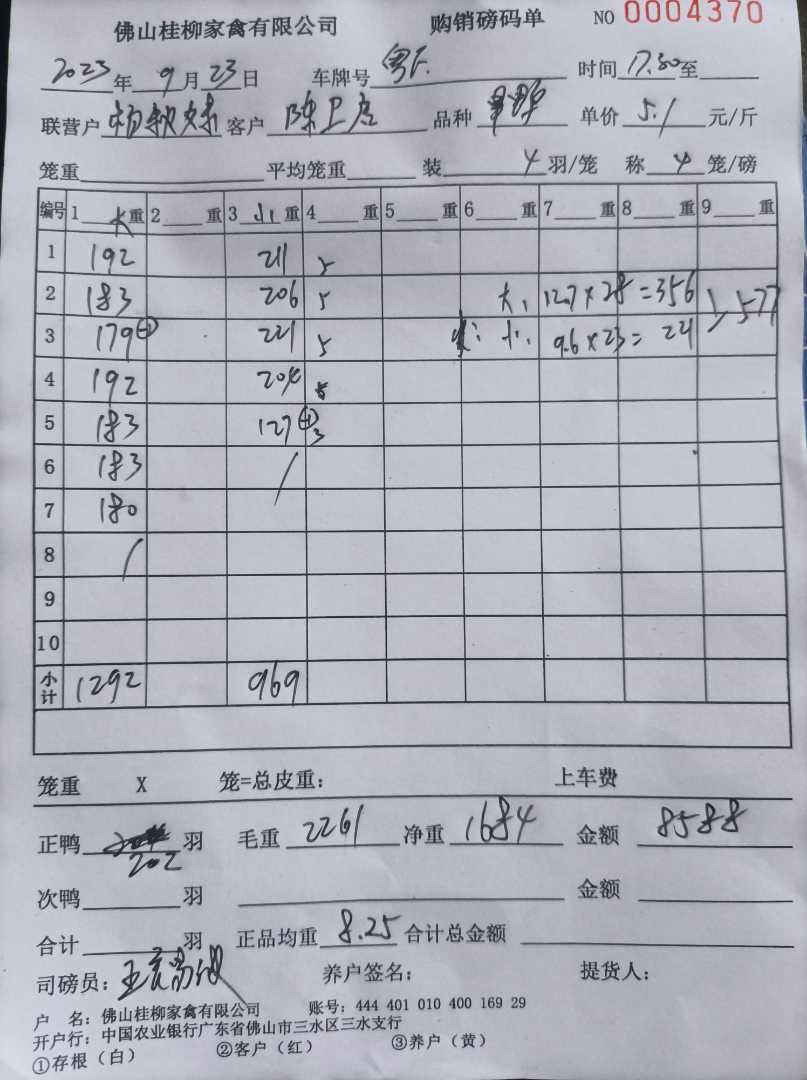 佛山桂柳家禽有限公司 购销磅码单 NO 0004370
2023年 9月23日 车牌号 粤 时间 17.30至
联营户 杨 妹 客户 陈上 品种 单价 5.1 元/斤
笼重 平均笼重 装 4 羽/笼 称 4 笼/磅
编号 1 大 重 2 重 3 小 重 4 重 5 重 6 重 7 重 8 重 9 重
1 192 211 5
2 183 206 5 大: 12.7×28=356
3 179 ⊖1 221 5 小: 9.6×23=221 } 577
4 192 204 5
5 183 127 3
6 183 /
7 180
8 /
9
10
小计 1292 969
笼重 X 笼=总皮重: 上车费
正鸭 202 羽 毛重 2261 净重 1684 金额 8588
次鸭 羽 金额
合计 羽 正品均重 8.25 合计总金额
司磅员: 养户签名: 提货人:
户 名: 佛山桂柳家禽有限公司 账号: 444 401 010 400 169 29
开户行: 中国农业银行广东省佛山市三水区三水支行
①存根(白) ②客户(红) ③养户(黄)